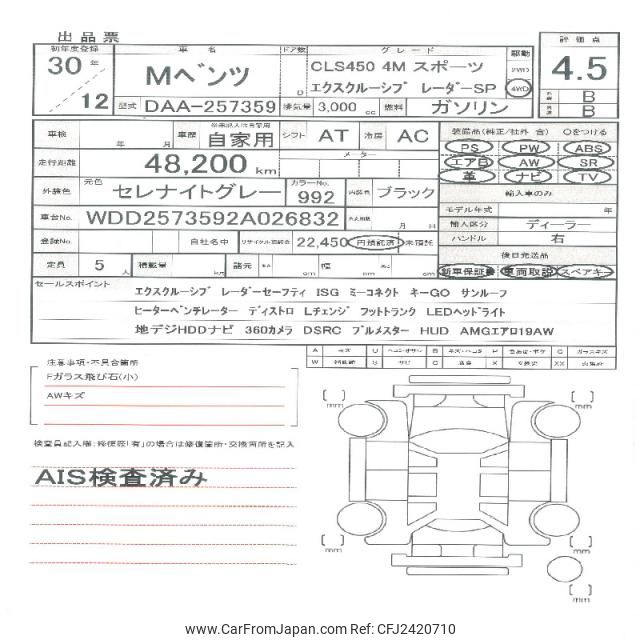 出品票
初年度登録 車名 ドア数 グレード 駆動 評価点
30年/12 Mベンツ D CLS450 4M スポーツ 2WD 4.5
エクスクルーシブ レーダーSP 4WD
B
B
型式 DAA-257359 排気量 3,000 cc 燃料 ガソリン
車検 年 月 車歴 自家用 シフト AT 冷房 AC 装備品(純正/社外 含) Oをつける
PS PW ABS
走行距離 48,200 km メーター エアB AW SR
革 ナビ TV
外装色 元色 セレナイトグレー カラーNo. 992 内装色 ブラック 輸入車のみ
モデル年式 年
車台No. WDD2573592A026832 月 日 輸入区分 ディーラー
登録No. 自社名中 リサイクル預託金 22,450 円預託済 未預託 ハンドル 右
後日発送品
定員 5 人 積載量 kg 諸元 長さ cm 幅 cm 高さ cm 新車保証書 車両取説 スペアキー
セールスポイント エクスクルーシブ レーダーセーフティ ISG ミーコネクト キーGO サンルーフ
ヒーターベンチレーター ディストロ Lチェンジ フットトランク LEDヘッドライト
地デジHDDナビ 360カメラ DSRC ブルメスター HUD AMGエアロ19AW
注意事項・不具合箇所
Fガラス飛び石(小)
AWキズ
検査員記入欄:修復歴「有」の場合は修復箇所・交換箇所を記入
AIS検査済み
mm
mm
mm
mm
mm
www.CarFromJapan.com Ref: CFJ2420710